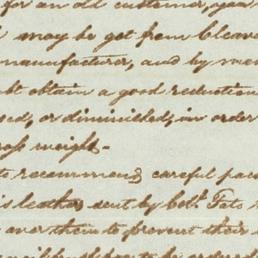 for an old customer, you
may be got from Cleav
manufacturer, and by me
obtain a good reduction
sed, or diminished, in order
ross weight.
to recommend careful pac
is leather sent by Colo. Tate
over them to prevent their